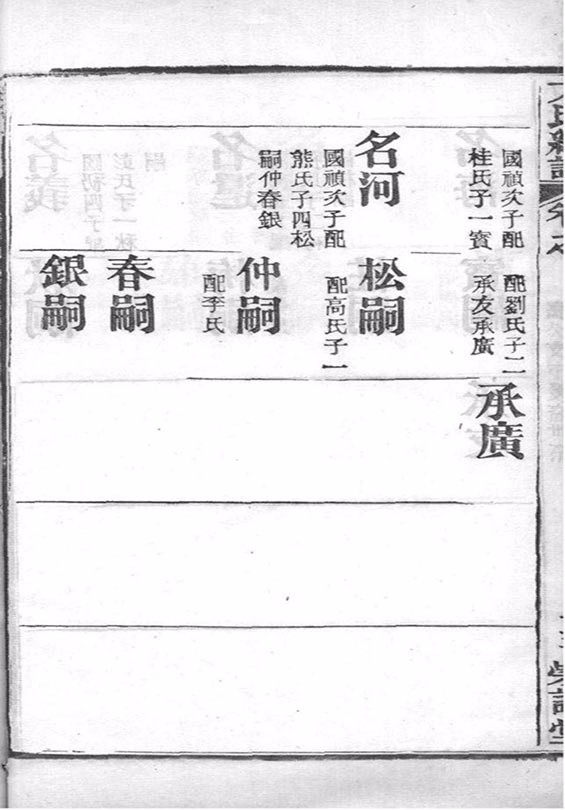 國禎次子配
桂氏子一賓
配劉氏子二
承友承廣
承廣
名河
國禎次子配
熊氏子四松
嗣仲春銀
松嗣
配高氏子一
仲嗣
配李氏
春嗣
銀嗣